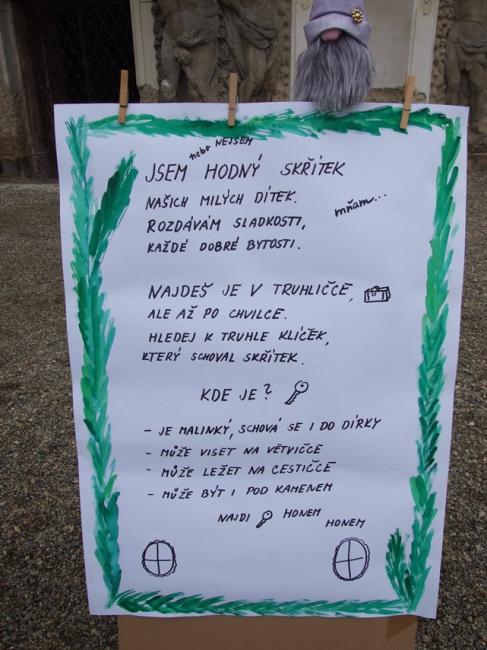 nebo NEJSEM
JSEM HODNÝ SKŘÍTEK
NAŠICH MILÝCH DÍTEK.
mňam...
ROZDÁVÁM SLADKOSTI,
KAŽDÉ DOBRÉ BYTOSTI.
NAJDEŠ JE V TRUHLIČCE,
ALE AŽ PO CHVILCE.
HLEDEJ K TRUHLE KLÍČEK,
KTERÝ SCHOVAL SKŘÍTEK.
KDE JE?
- JE MALINKÝ, SCHOVÁ SE I DO DÍRKY
- MŮŽE VISET NA VĚTVIČCE
- MŮŽE LEŽET NA CESTIČCE
- MŮŽE BÝT I POD KAMENEM
NAJDI HONEM
HONEM